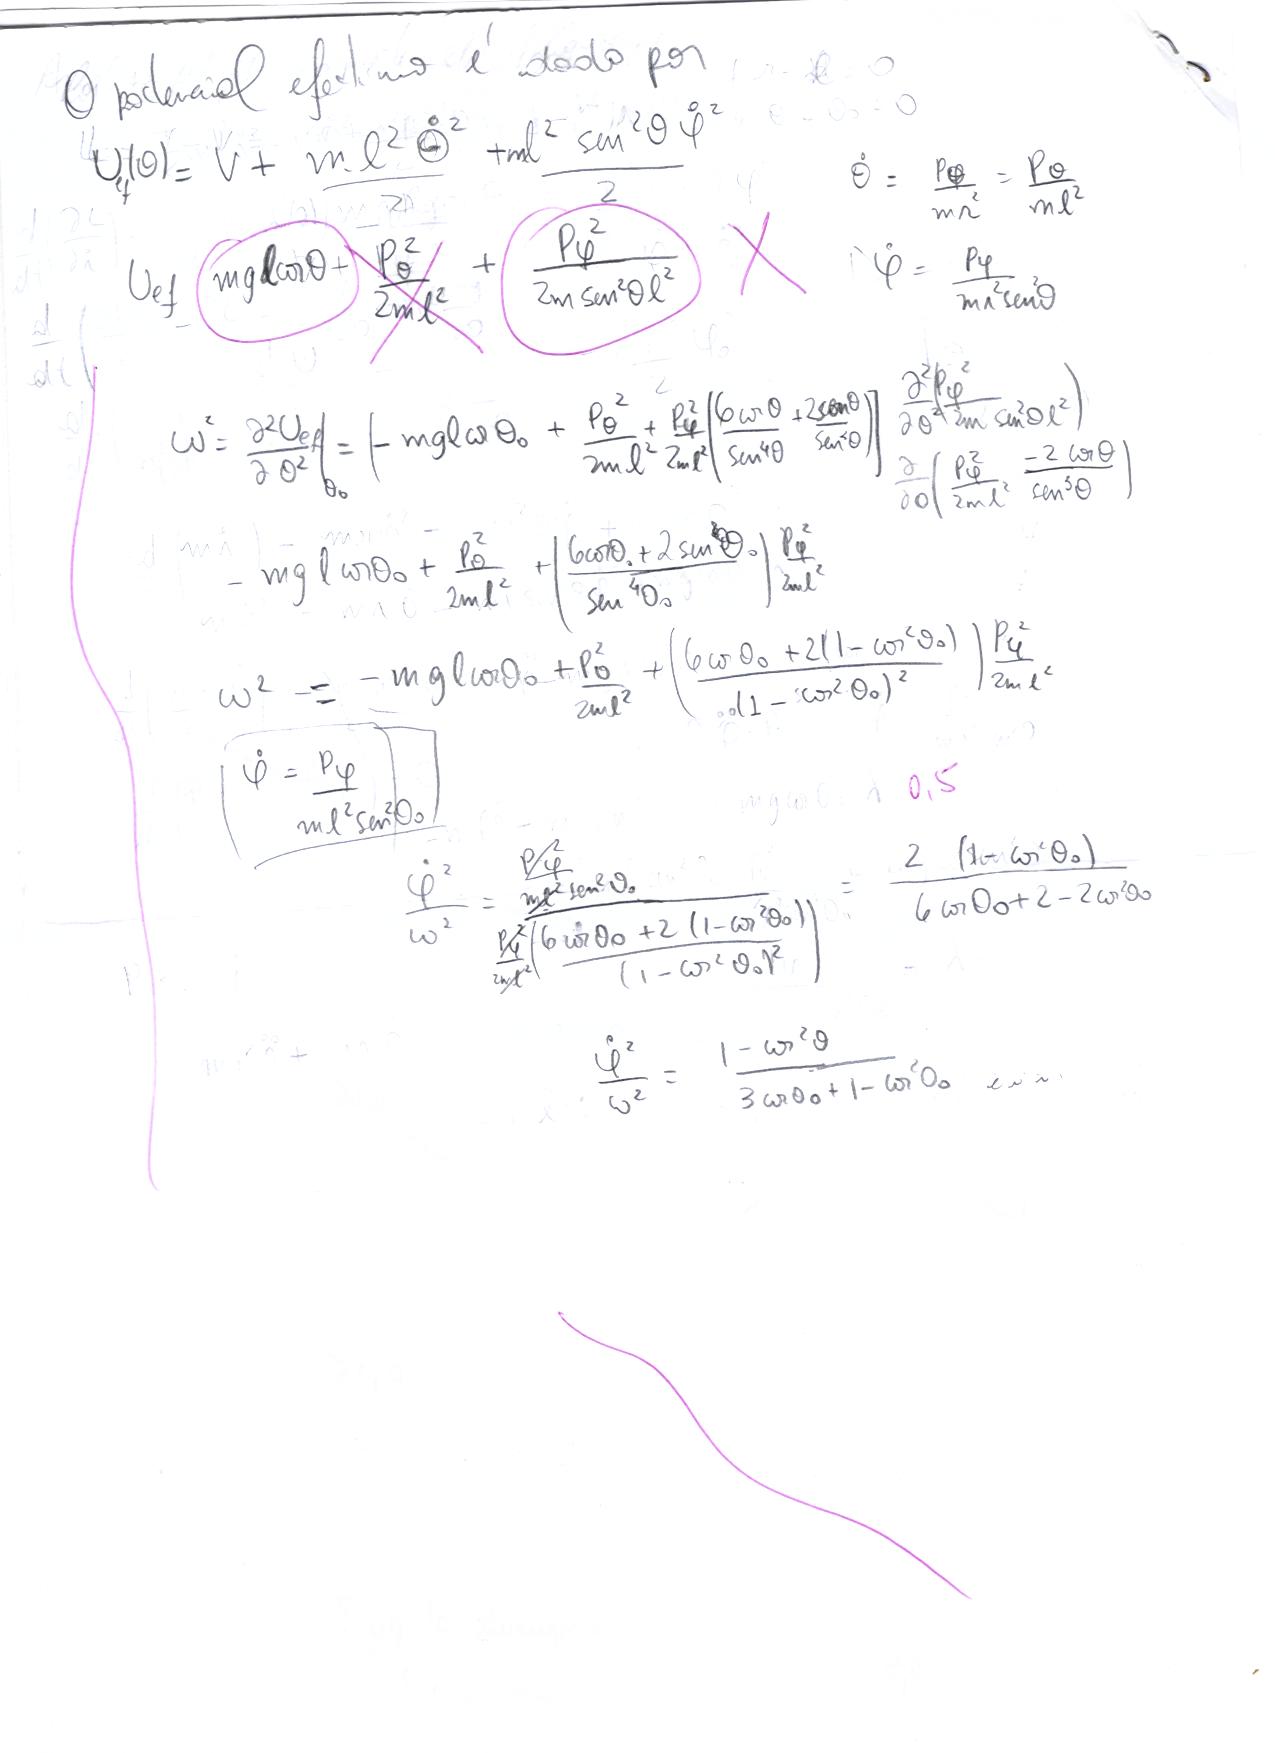 O potencial efetivo é dado por
U_ef(θ) = V + ml²θ̇²/2 + ml² sen²θ φ̇²/2
θ̇ = Pθ/mr² = Pθ/ml²
U_ef mglcosθ + Pθ²/2ml² + Pφ²/2m sen²θl²
φ̇ = Pφ/mr²sen²θ
ω² = ∂²U_ef/∂θ²|θ₀ = [-mglcosθ₀ + Pθ²/2ml² + Pφ²/2ml² (6cosθ/sen⁴θ + 2senθ/sen³θ)]
∂²/∂θ² (Pφ²/2m sen²θl²)
∂/∂θ (Pφ²/2ml² -2cosθ/sen³θ)
-mglcosθ₀ + Pθ²/2ml² + (6cosθ₀ + 2sen²θ₀/sen⁴θ₀) Pφ²/2ml²
ω² = -mglcosθ₀ + Pθ²/2ml² + (6cosθ₀ + 2(1-cos²θ₀)/(1-cos²θ₀)²) Pφ²/2ml²
φ̇ = Pφ/ml²sen²θ₀
0,5
φ̇²/ω² = (Pφ²/ml²sen²θ₀)/(Pφ²/2ml² (6cosθ₀ + 2(1-cos²θ₀)/(1-cos²θ₀)²)) = 2(1-cos²θ₀)/6cosθ₀+2-2cos²θ₀
φ̇²/ω² = 1-cos²θ/3cosθ₀+1-cos²θ₀